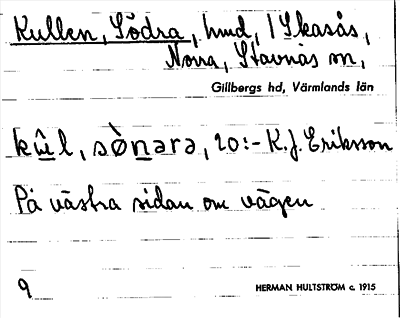 Kullen, Södra, hmd, 1 Skasås,
Norra, Stavnäs sn,
Gillbergs hd, Värmlands län
kûl, sònara, 20:- K.J. Eriksson
På västra sidan om vägen
9
HERMAN HULTSTRÖM c. 1915